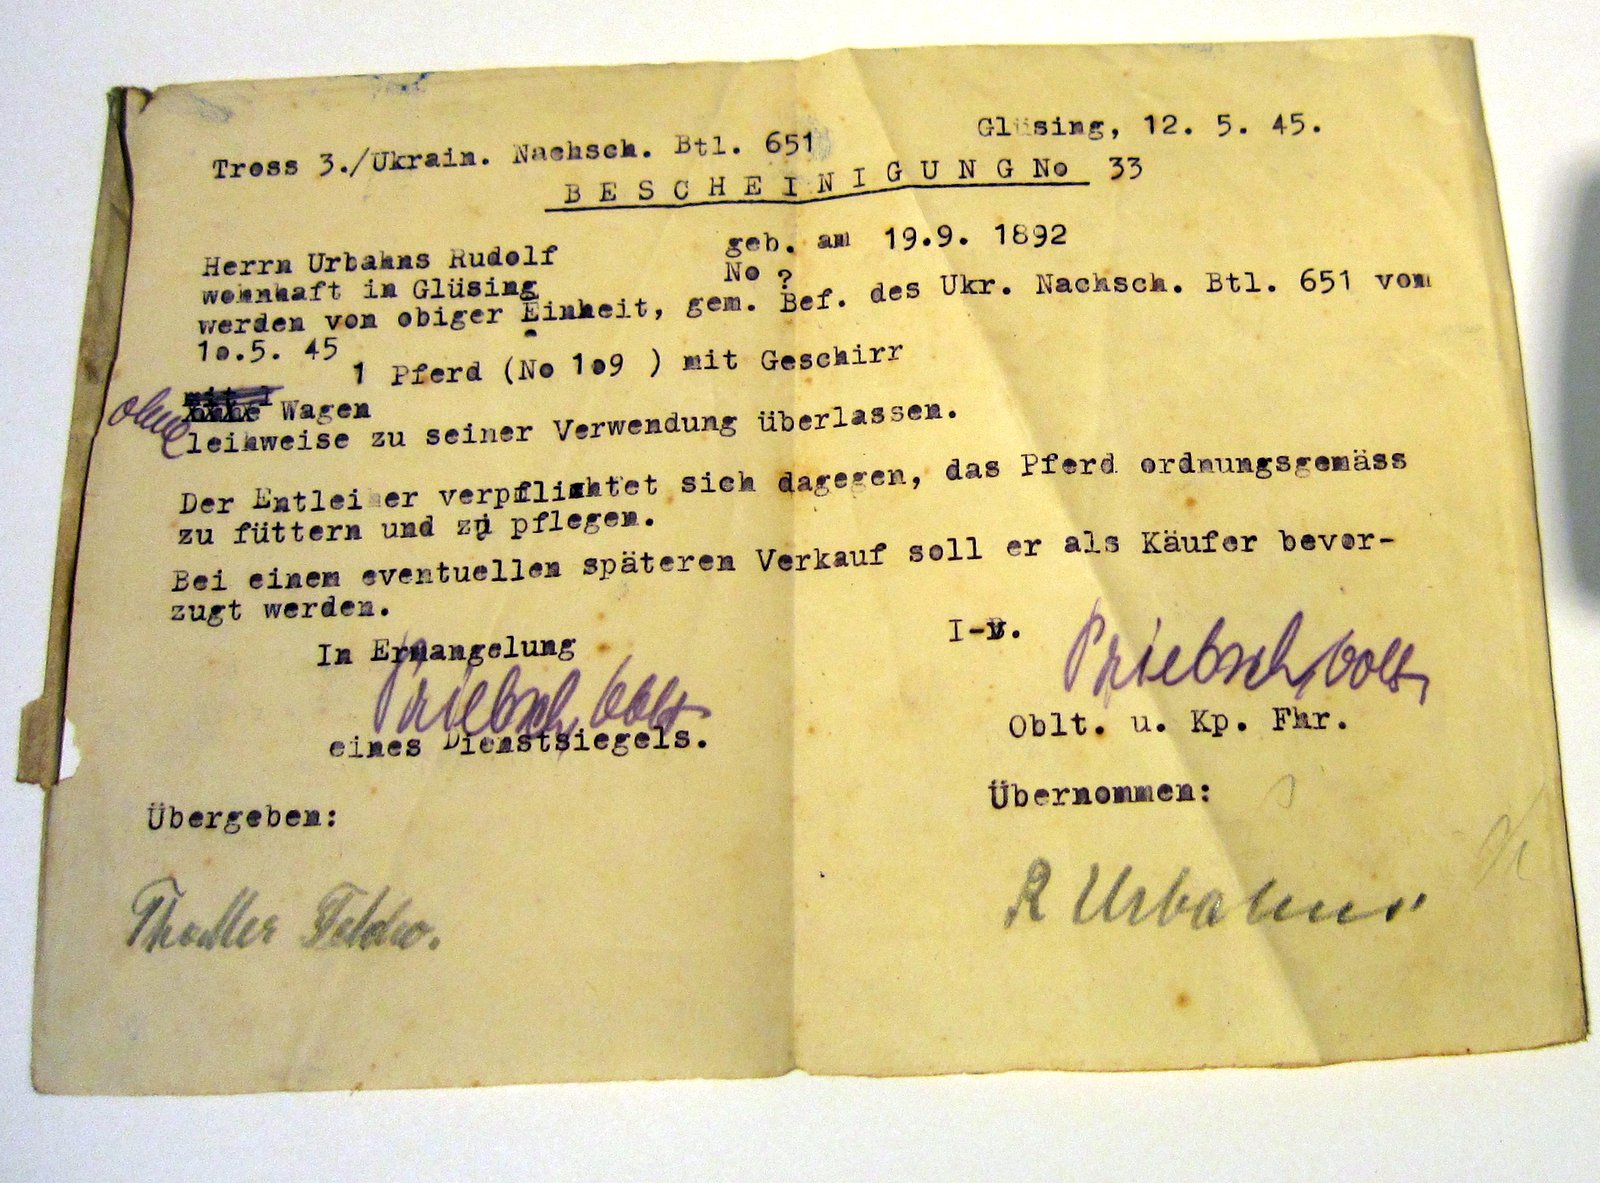 Glüsing, 12. 5. 45.
Tross 3./Ukrain. Nachsch. Btl. 651
BESCHEINIGUNG No 33
Herrn Urbahns Rudolf geb. am 19.9. 1892
wohnhaft in Glüsing No ?
werden von obiger Einheit, gem. Bef. des Ukr. Nachsch. Btl. 651 vom
10.5. 45
1 Pferd (No 109 ) mit Geschirr
mit 1
ohne Wagen
leihweise zu seiner Verwendung überlassen.
Der Entleiher verpflichtet sich dagegen, das Pferd ordnungsgemäss
zu füttern und zu pflegen.
Bei einem eventuellen späteren Verkauf soll er als Käufer bevor-
zugt werden.
In Ermangelung I-V.
Priebsch, Oblt Priebsch, Oblt
eines Dienstsiegels. Oblt. u. Kp. Fhr.
Übergeben: Übernommen:
R Urbahns